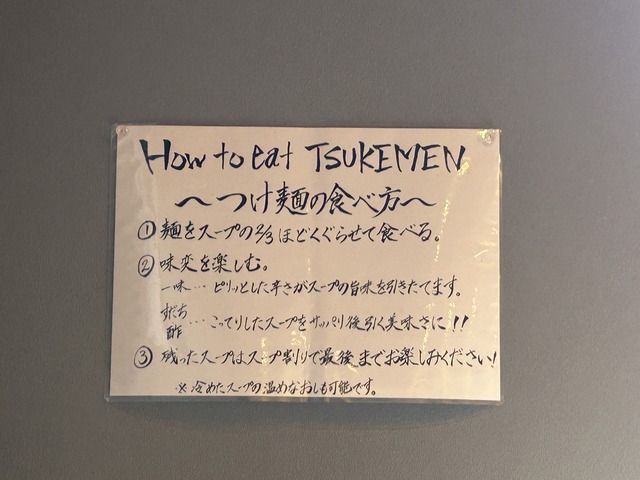 How to eat TSUKEMEN
～つけ麺の食べ方～
① 麺をスープの2/3ほどくぐらせて食べる。
② 味変を楽しむ。
一味… ピリッとした辛さがスープの旨味を引きたてます。
すだち
酢 … こってりしたスープをサッパリ後引く美味さに!!
③ 残ったスープはスープ割りで最後までお楽しみください!
※ 冷めたスープの温めなおしも可能です。